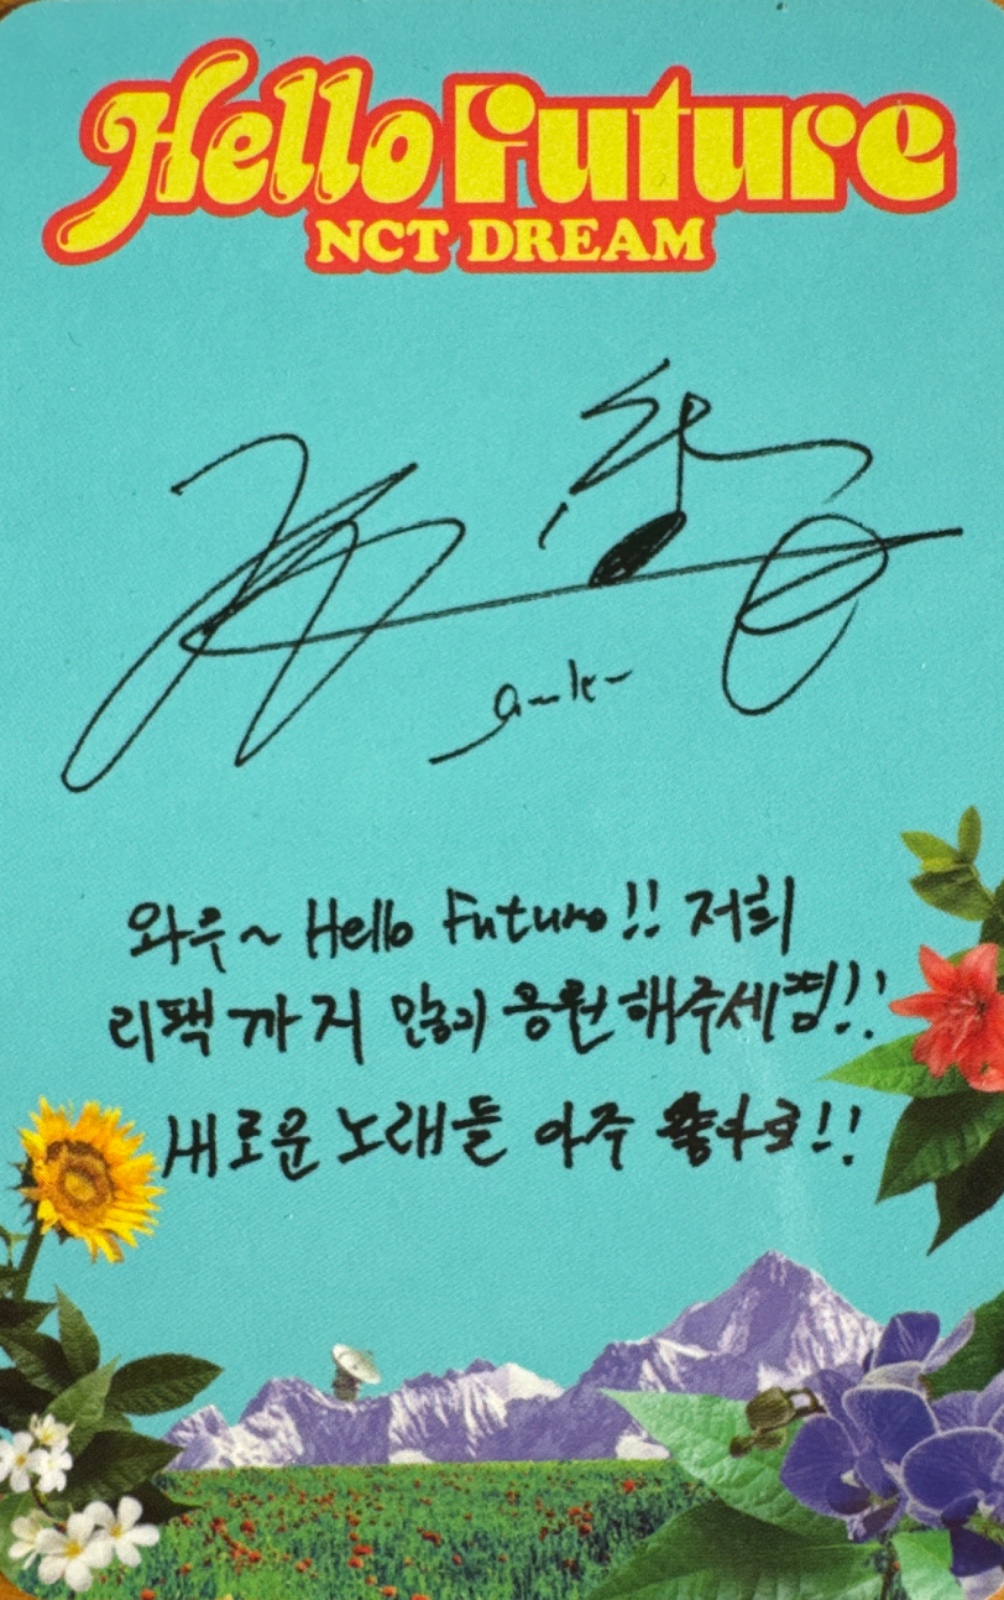 Hello Future
NCT DREAM
와우~ Hello Future!! 저희
리팩까지 많이 응원해주세염!!
새로운 노래들 아주 좋아요!!